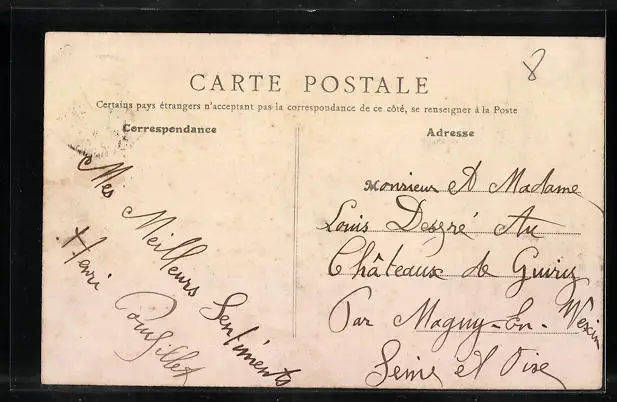 8
CARTE POSTALE
Certains pays étrangers n'acceptant pas la correspondance de ce côté, se renseigner à la Poste
Correspondance
Mes Meilleurs Sentiments
Henri
Adresse
Monsieur et Madame
Louis Desgré Au
Châteaux de Guiry
Par Magny-En-Vexin
Seine et Oise